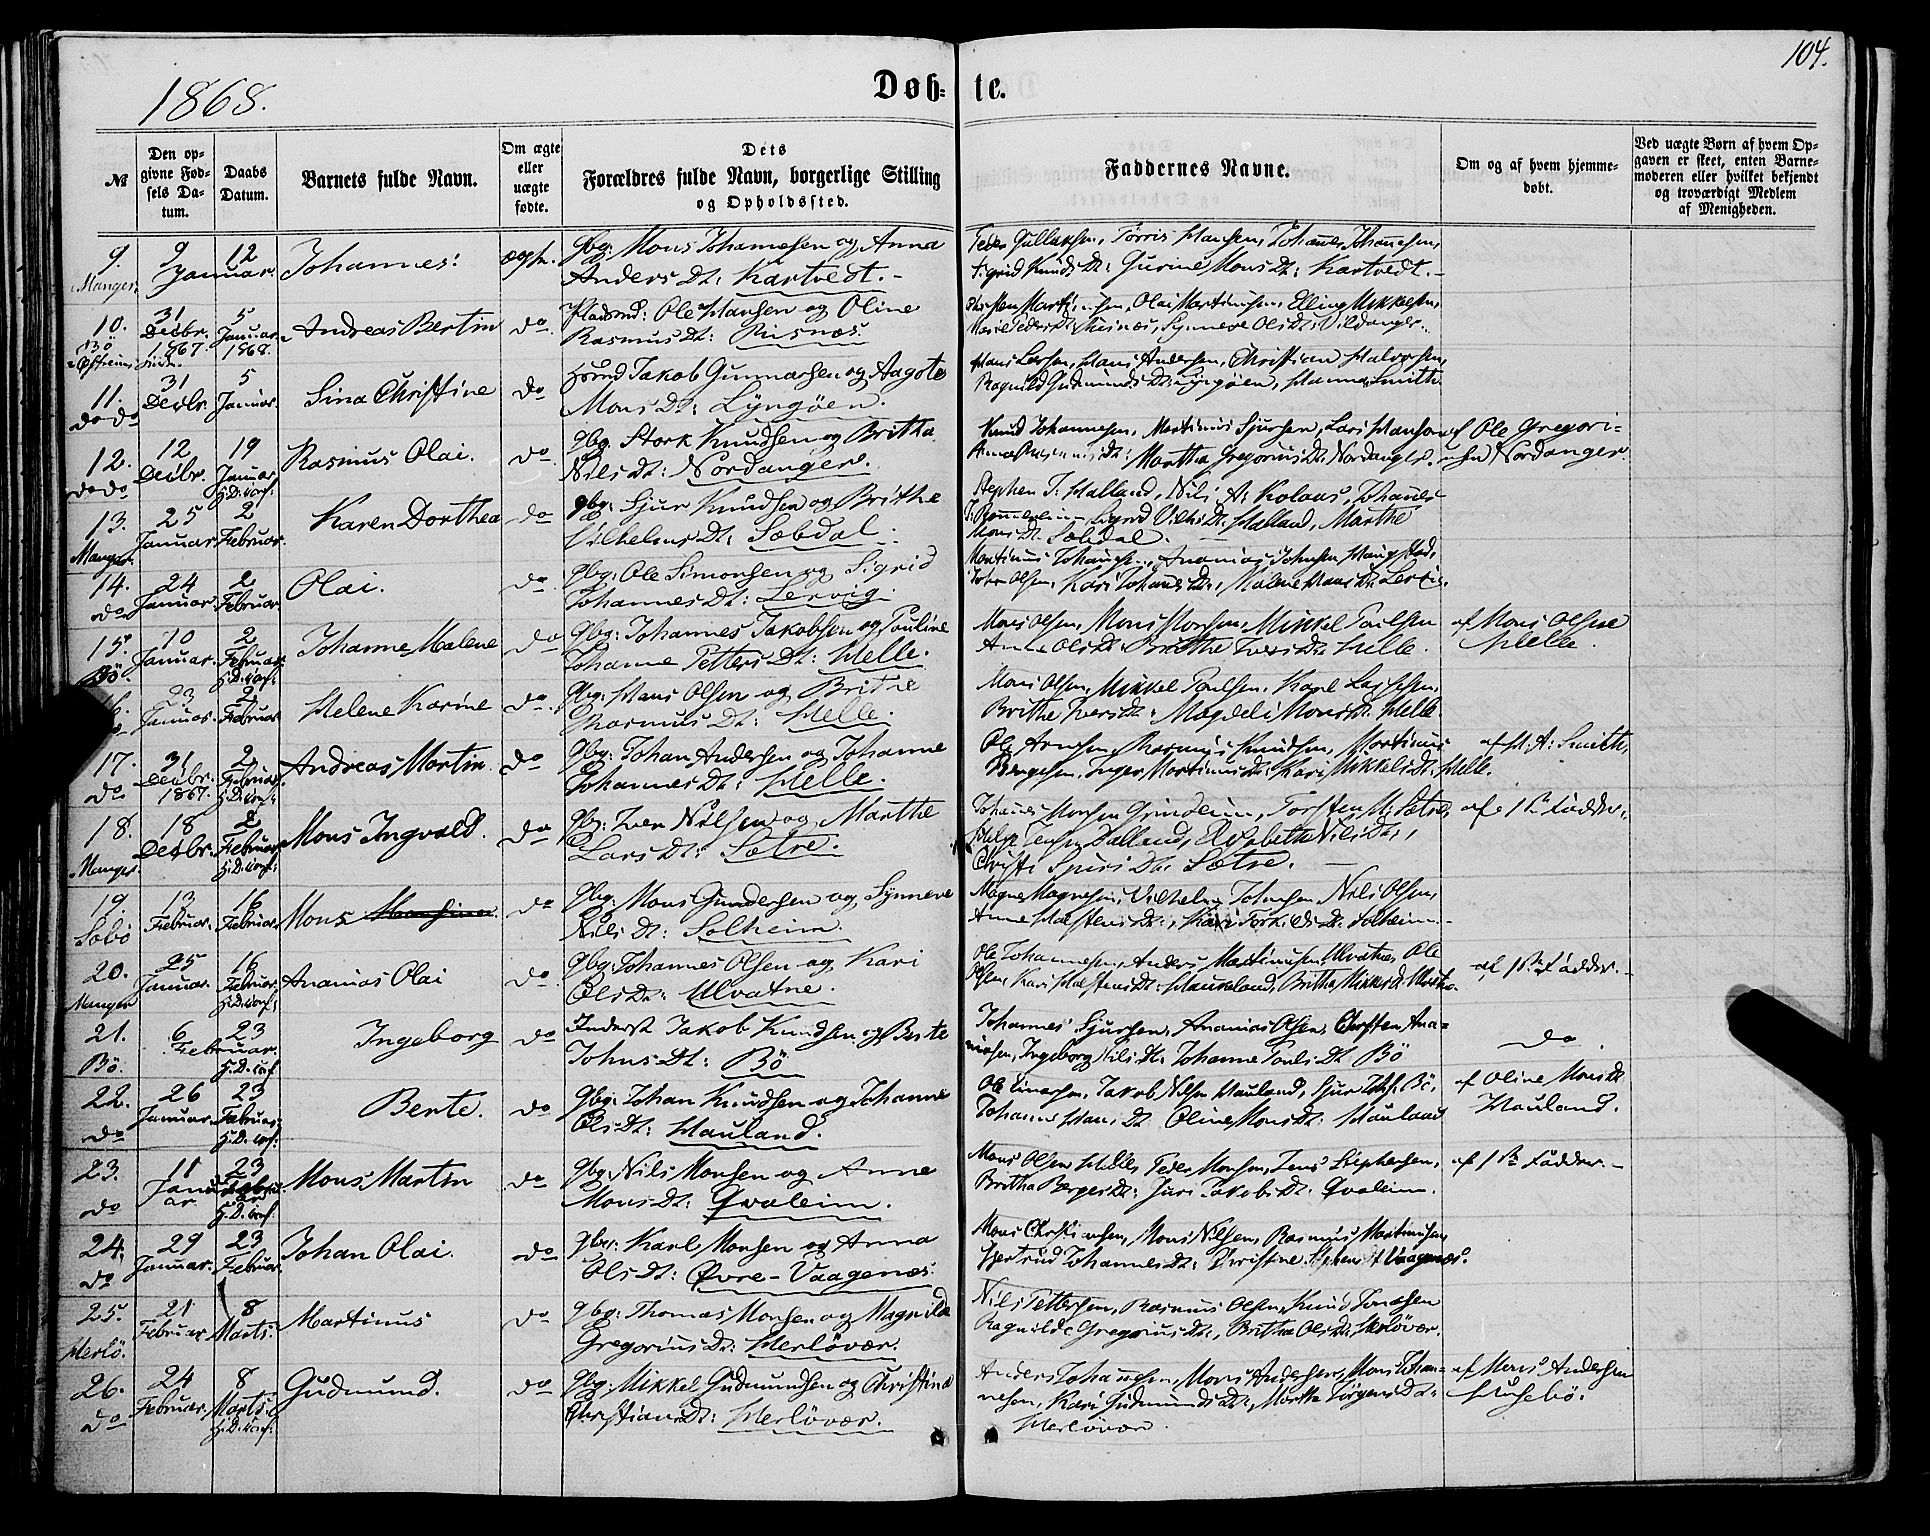 104.
1868.
Døb- te.
№
Den op-
givne Fød-
sels Da-
tum.
Daabs
Datum.
Barnets fulde Navn.
Om ægte
eller
uægte
fødte.
Dets
Forældres fulde Navn, borgerlige Stilling
og Opholdssted.
Faddernes Navne.
Om og af hvem hjemme-
døbt.
Ved uægte Børn af hvem Op-
gaven er skeet, enten Barne-
moderen eller hvilket bekjendt
og troværdigt Medlem
af Menigheden.
9. Manger.
9 12
Januar.
Johannes.
ægte.
Gbg: Mons Johannesen og Anna
Anders Dt: Kartvedt.
Peder Gullaksen, Tørris Hansen, Johannes Johannesen,
Sigrid Knuds Dt: Gurine Mons Dt: Kartvedt.
10.
31 Decbr. 1867.
5 Januar 1868.
Andreas Bertin
do
Pladsmd: Ole Hansen og Oline
Rasmus Dt: Risnæs.
Olai Martinusen, Elling Mikkelsen,
Risnæs, Synneve Ols Dt: Vildanger.
11.
do do
31 Decbr.
5 Januar.
Sina Christine
do
Husmd Jakob Gunnarsen og Aagote
Mons Dt: Lyngöen.
Hans Larsen, Hans Andersen, Christian Halvorsen,
Ragnild Gudmunds Dt: Lyngöen, Hanna Smith.
12.
do do
12 Decbr.
19 Januar
H: D: conf:
Rasmus Olai.
do
Gbg: Stork Knudsen og Britha
Nils Dt: Nordanger.
Knud Johannesen, Martinus Sjursen, Lars Hansen
Martha Gregorius Dt: Nordanger.
af Ole Gregori-
usen Nordanger.
13.
Manger.
25 Januar
2 Februar.
Karen Dorthea
do
gbg: Sjur Knudsen og Brithe
Vilhelms Dt: Sæbdal.
Stephen J: Halland, Nils A: Kolaas, Johannes
Sigrid Vilh: Dt: Halland, Marthe
Mons Dt: Sæbdal.
14.
do
24 Januar.
2 Februar.
Olai.
do
Gbg: Ole Simonsen og Sigrid
Johannes Dt: Lervig.
Martinus Johannesen, Ananias Johnsen Haugstad,
John Olsen, Kari Johannes Dt: Malene Hans Dt: Lervig.
15.
Bö.
10 Januar.
2 Februar.
H: D: conf:
Johanne Malene
do
Gbg: Johannes Jakobsen og Pauline
Johanne Petters Dt: Helle.
Mons Olsen, Mons Monsen, Mikkel Paulsen
Anna Ols Dt: Brithe Ivers Dt: Helle.
af Mons Olsen
Helle.
23 Januar.
2 Februar
Helene Karine
do
Gbg: Hans Olsen og Brithe
Rasmus Dt: Helle.
Mons Olsen, Mikkel Paulsen, Karl Larssen,
Brithe Ivers Dt: Magdeli Mons Dt: Helle.
17.
do
31 Decbr. 1867.
2 Februar.
H: D: conf:
Andreas Martin
do
Gbg: Johan Andersen og Johanne
Johannes Dt: Helle.
Ole Arnesen, Rasmus Knudsen, Martinus
Bengtsen, Inger Martinus Dt: Kari Mikkels Dt: Helle.
af H. A: Smith,
18.
Manger.
18 Decbr.
2 Februar
H: D: conf:
Mons Ingvald.
do
Gbg: Iver Nilsen og Marthe
Lars Dt: Sætre.
Johannes Monsen Grindeim, Torsten M: Sætre,
Halland, Elisabeth Nils Dt:,
Sjurs Dt: Sætre.
af 1ste Fadder.
19.
Sæbö
13 Februar.
16 Februar.
Mons
do
Gbg: Mons Gundersen og Synneve
Nils Dt: Solheim.
Magne Magnesen, Vilhelm Johnsen, Nils Olsen,
Anne Halstens Dt:, Kari Torkels Dt: Solheim.
20.
Manger
25 Januar.
16 Februar.
H: D: conf:
Ananias Olai
do
Gbg: Johannes Olsen og Kari
Ols Dt: Ulvatne.
Ole Johannesen, Anders Martinusen Ulvatne, Ole
Olsen, Kari Halstens Dt: Haukeland, Britha
af 1ste Fadder.
21.
Bö.
6 23
Februar.
H: D: conf:
Ingeborg
do
Inderst Jakob Knudsen og Berte
Johns Dt: Bö
Johannes Sjursen, Ananias Olsen, Christen Ana-
niasen, Ingeborg Nils Dt: Johanne Pauls Dt: Bö
do
22.
do
26 Januar
23 Februar
H: D: conf:
Berte.
do
Gbg: Johan Knudsen og Johanne
Ols Dt: Hauland.
Ole Einarsen, Jakob Nilsen Hauland, Sjur Bö,
Johanna Hans Dt: Oline Mons Dt: Hauland
af Oline Mons Dt:
Hauland.
23.
do
11 Janu-
ar.
23
H: D: conf:
Mons Martin
do
Gbg: Nils Monsen og Anne
Mons Dt: Qvaleim.
Mons Olsen Helle, Peder Monsen, Jens Stephensen,
Britha Børges Dt: Guri Jakobs Dt: Qvaleim.
af 1ste Fadder.
24.
do
29 Januar.
23 Februar.
Johan Olai.
do
Gbr: Karl Monsen og Anna
Ols Dt: Øvre-Vaagenæs.
Mons Christiansen, Mons Nilsen, Rasmus Martinusen,
Gjertrud Johannes Dt: Christine Stephens Dt Vaagenæs.
25.
Herlö.
21 Februar
8 Marts.
Martinus
do
Gbg: Thomas Monsen og Magnilde
Gregorius Dt: Herlövær.
Nils Pettersen, Rasmus Olsen, Knud Jonasen
Ragnilde Gregorius Dt:, Britha Ols Dt: Herlövær.
26.
do
24 Februar.
8 Marts.
H: D: conf:
Gudmund.
do
Gbg: Mikkel Gudmundsen og Christine
Christians Dt: Herlövær.
Anders Johannesen, Mons Andersen, Mons Johan-
nesen, Kari Gudmunds Dt: Martha Jørgens Dt:
Herlövær.
af Mons Andersen
Husebö.